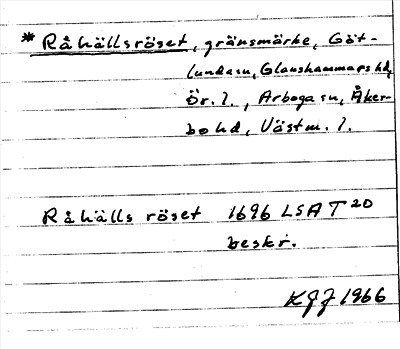 * Råhällsröset, gränsmärke, Göt-
lunda sn, Glanshammars hd,
Ör. l., Arboga sn, Åker-
bo hd, Västm. l.
Råhälls röset 1696 LSA T 20
beskr.
KGJ 1966